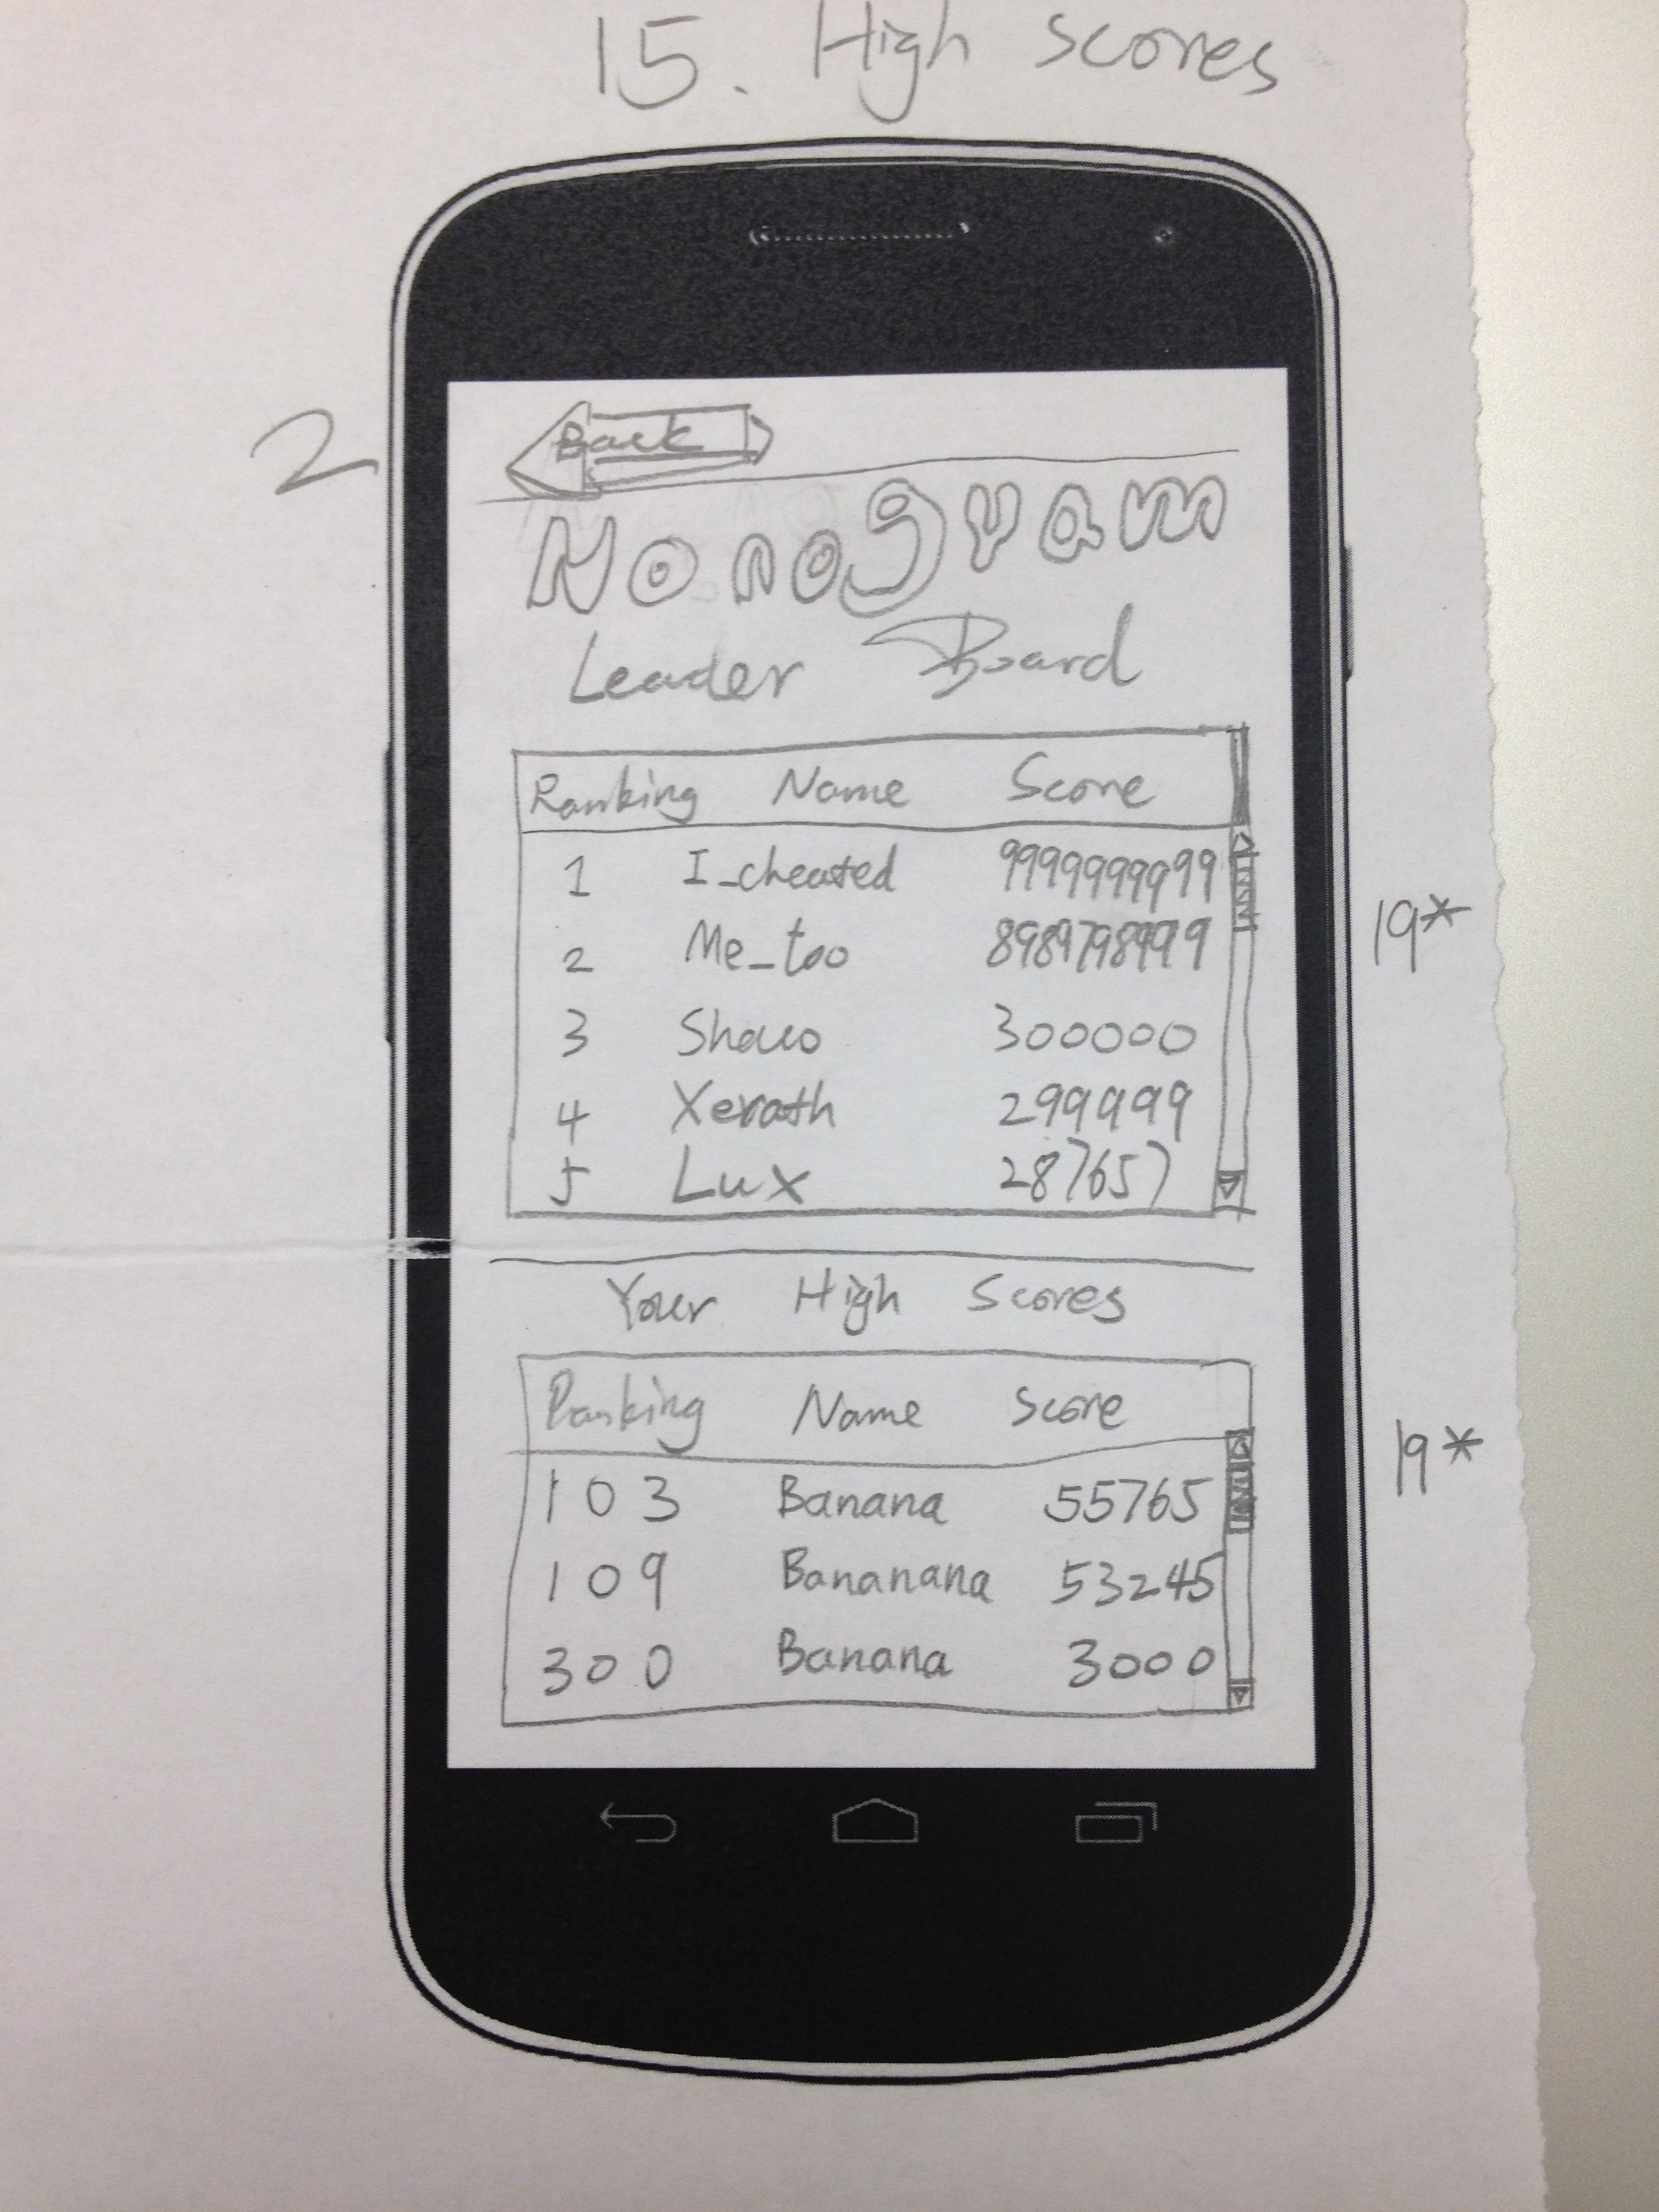 15. High Scores
2
Back
Nonogram
Leader Board
Ranking Name Score
1 I_cheated 9999999999
19*
2 Me_too
3 Shaco 300000
4 Xerath 299999
5 Lux 287657
Your High Scores
Ranking Name Score
19*
103 Banana 55765
109 Bananana 53245
300 Banana 3000